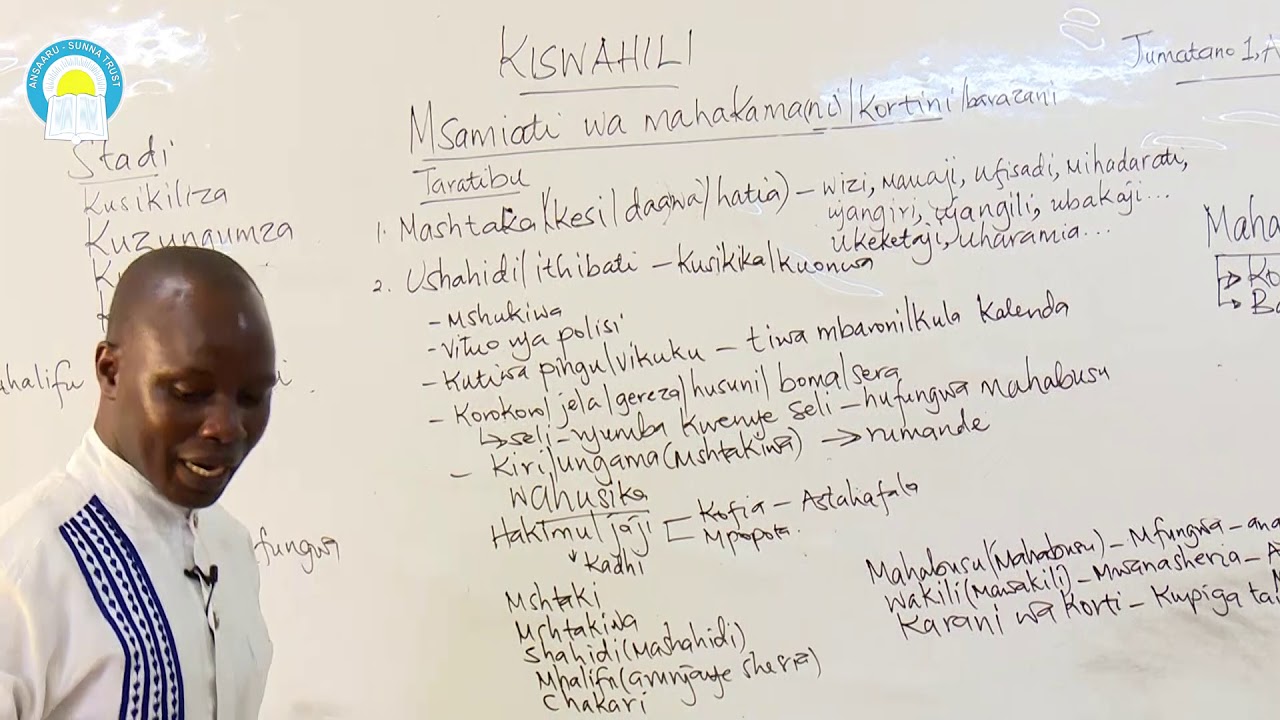 ANSAARU - SUNNA TRUST
KISWAHILI
Jumatano 1,
Msamiati wa mahakama(ni)/kortini/barazani
Stadi
Kusikiliza
Kuzungumza
Taratibu
1. Mashtaka/(kesi/daawa/hatia) – wizi, mauaji, ufisadi, mihadarati,
ujangiri, ujangili, ubakaji...
ukeketaji, uharamia...
2. Ushahidi/ithibati – kusikika/kuonwa
- Mshukiwa
- Vituo vya polisi
- Kutiwa pingu/vikuku – tiwa mbaroni/kula kalenda
- Korokoro/jela/gereza/husuni/boma/sera
↳ seli – nyumba kwenye seli – hufungwa mahabusu
- Kiri/ungama (Mshtakiwa) → rumande
Wahusika
Hakimu/jaji
Kofia – Astahafala
Mpopota
Kadhi
Mshtaki
Mshtakiwa
Shahidi (Mashahidi)
Mhalifu (avunjaye sheria)
Chakari
Maha
Ko
Ba
halifu
fungwa
Mahabusu (Mahabusu) – Mfungwa – ana
Wakili (Mawakili) – Mwanasheria – A
Karani wa korti – Kupiga tai